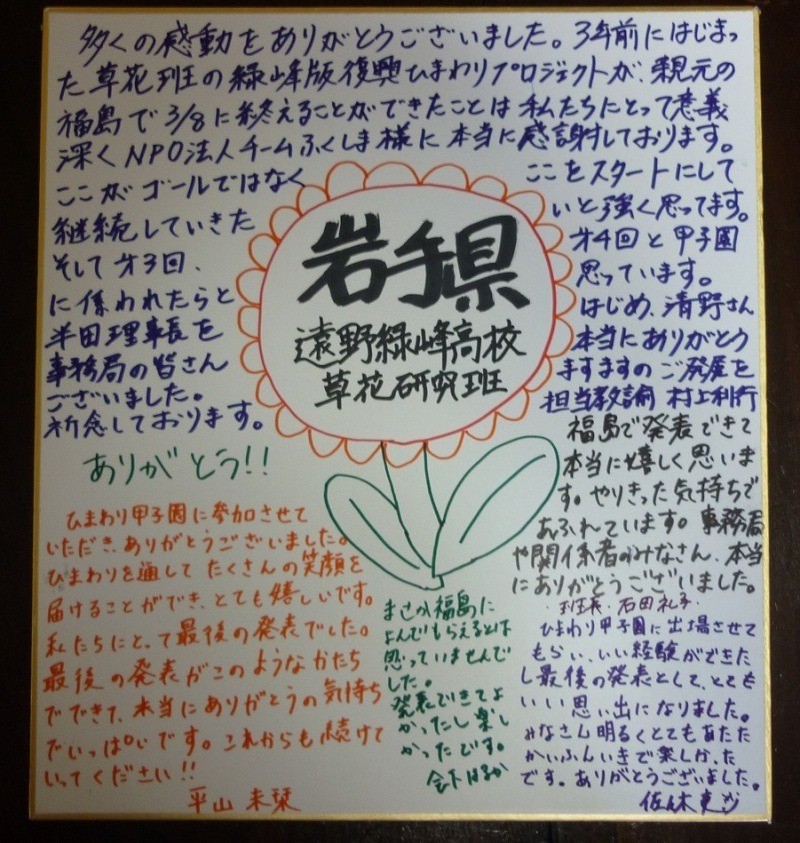 多くの感動をありがとうございました。3年前にはじまっ
た草花班の緑峰版復興ひまわりプロジェクトが、親元の
福島で3/8に終えることができたことは私たちにとって意義
深くNPO法人チームふくしま様に本当に感謝しております。
ここがゴールではなく ここをスタートにして
継続していきた いと強く思ってます。
そして才3回、 才4回と甲子園
に係われたらと 思っています。
半田理事長を はじめ、清野さん
事務局の皆さん 本当にありがとう
ございました。 ますますのご発展を
祈念しております。 担当教諭 村上利行
岩手県
遠野緑峰高校
草花研究班
ありがとう!!
福島で発表できて
本当に嬉しく思いま
す。やりきった気持ちで
あふれています。事務局
や関係者のみなさん、本当
にありがとうございました。
班長 石田礼子
ひまわり甲子園に参加させて
いただき、ありがとうございました。
ひまわりを通してたくさんの笑顔を
届けることができ、とても嬉しいです。
私たちにとって最後の発表でした。
最後の発表がこのようなかたち
でできて、本当にありがとうの気持ち
でいっぱいです。これからも続けて
いってください!!
平山 未栞
まさか福島に
よんでもらえるとは
思っていませんで
した。
発表できてよ
かったし楽し
かったです。
ひまわり甲子園に出場させて
もらい、いい経験ができた
し最後の発表として、とても
いい思い出になりました。
みなさん明るくとてもあたた
かいふんいきで楽しかった
です。ありがとうございました。
佐々木